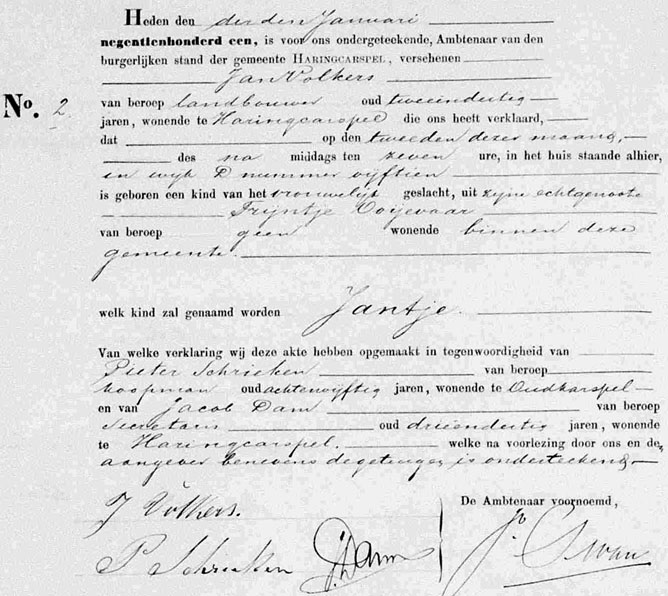 Heden den derden Januari
negentienhonderd een, is voor ons ondergeteekende, Ambtenaar van den
burgerlijken stand der gemeente HARINGCARSPEL, verschenen
Jan Volkers
No. 2
van beroep landbouwer oud tweeendertig
jaren, wonende te Haringcarspel die ons heeft verklaard,
dat op den tweeden dezer maand,
des na middags ten zeven ure, in het huis staande alhier,
in wijk D nummer vijftien
is geboren een kind van het vrouwelijk geslacht, uit zijne echtgenoote
Trijntje Ooijevaar
van beroep geen wonende binnen deze
gemeente.
welk kind zal genaamd worden Jantje.
Van welke verklaring wij deze akte hebben opgemaakt in tegenwoordigheid van
Pieter Schrieken van beroep
koopman oud achtenvijftig jaren, wonende te Oudkarspel
en van Jacob Dam van beroep
secretaris oud drieendertig jaren, wonende
te Haringcarspel. welke na voorlezing door ons en de
aangever benevens de getuigen is onderteekend
J Volkers.
De Ambtenaar voornoemd,
P. Schrieken JDam